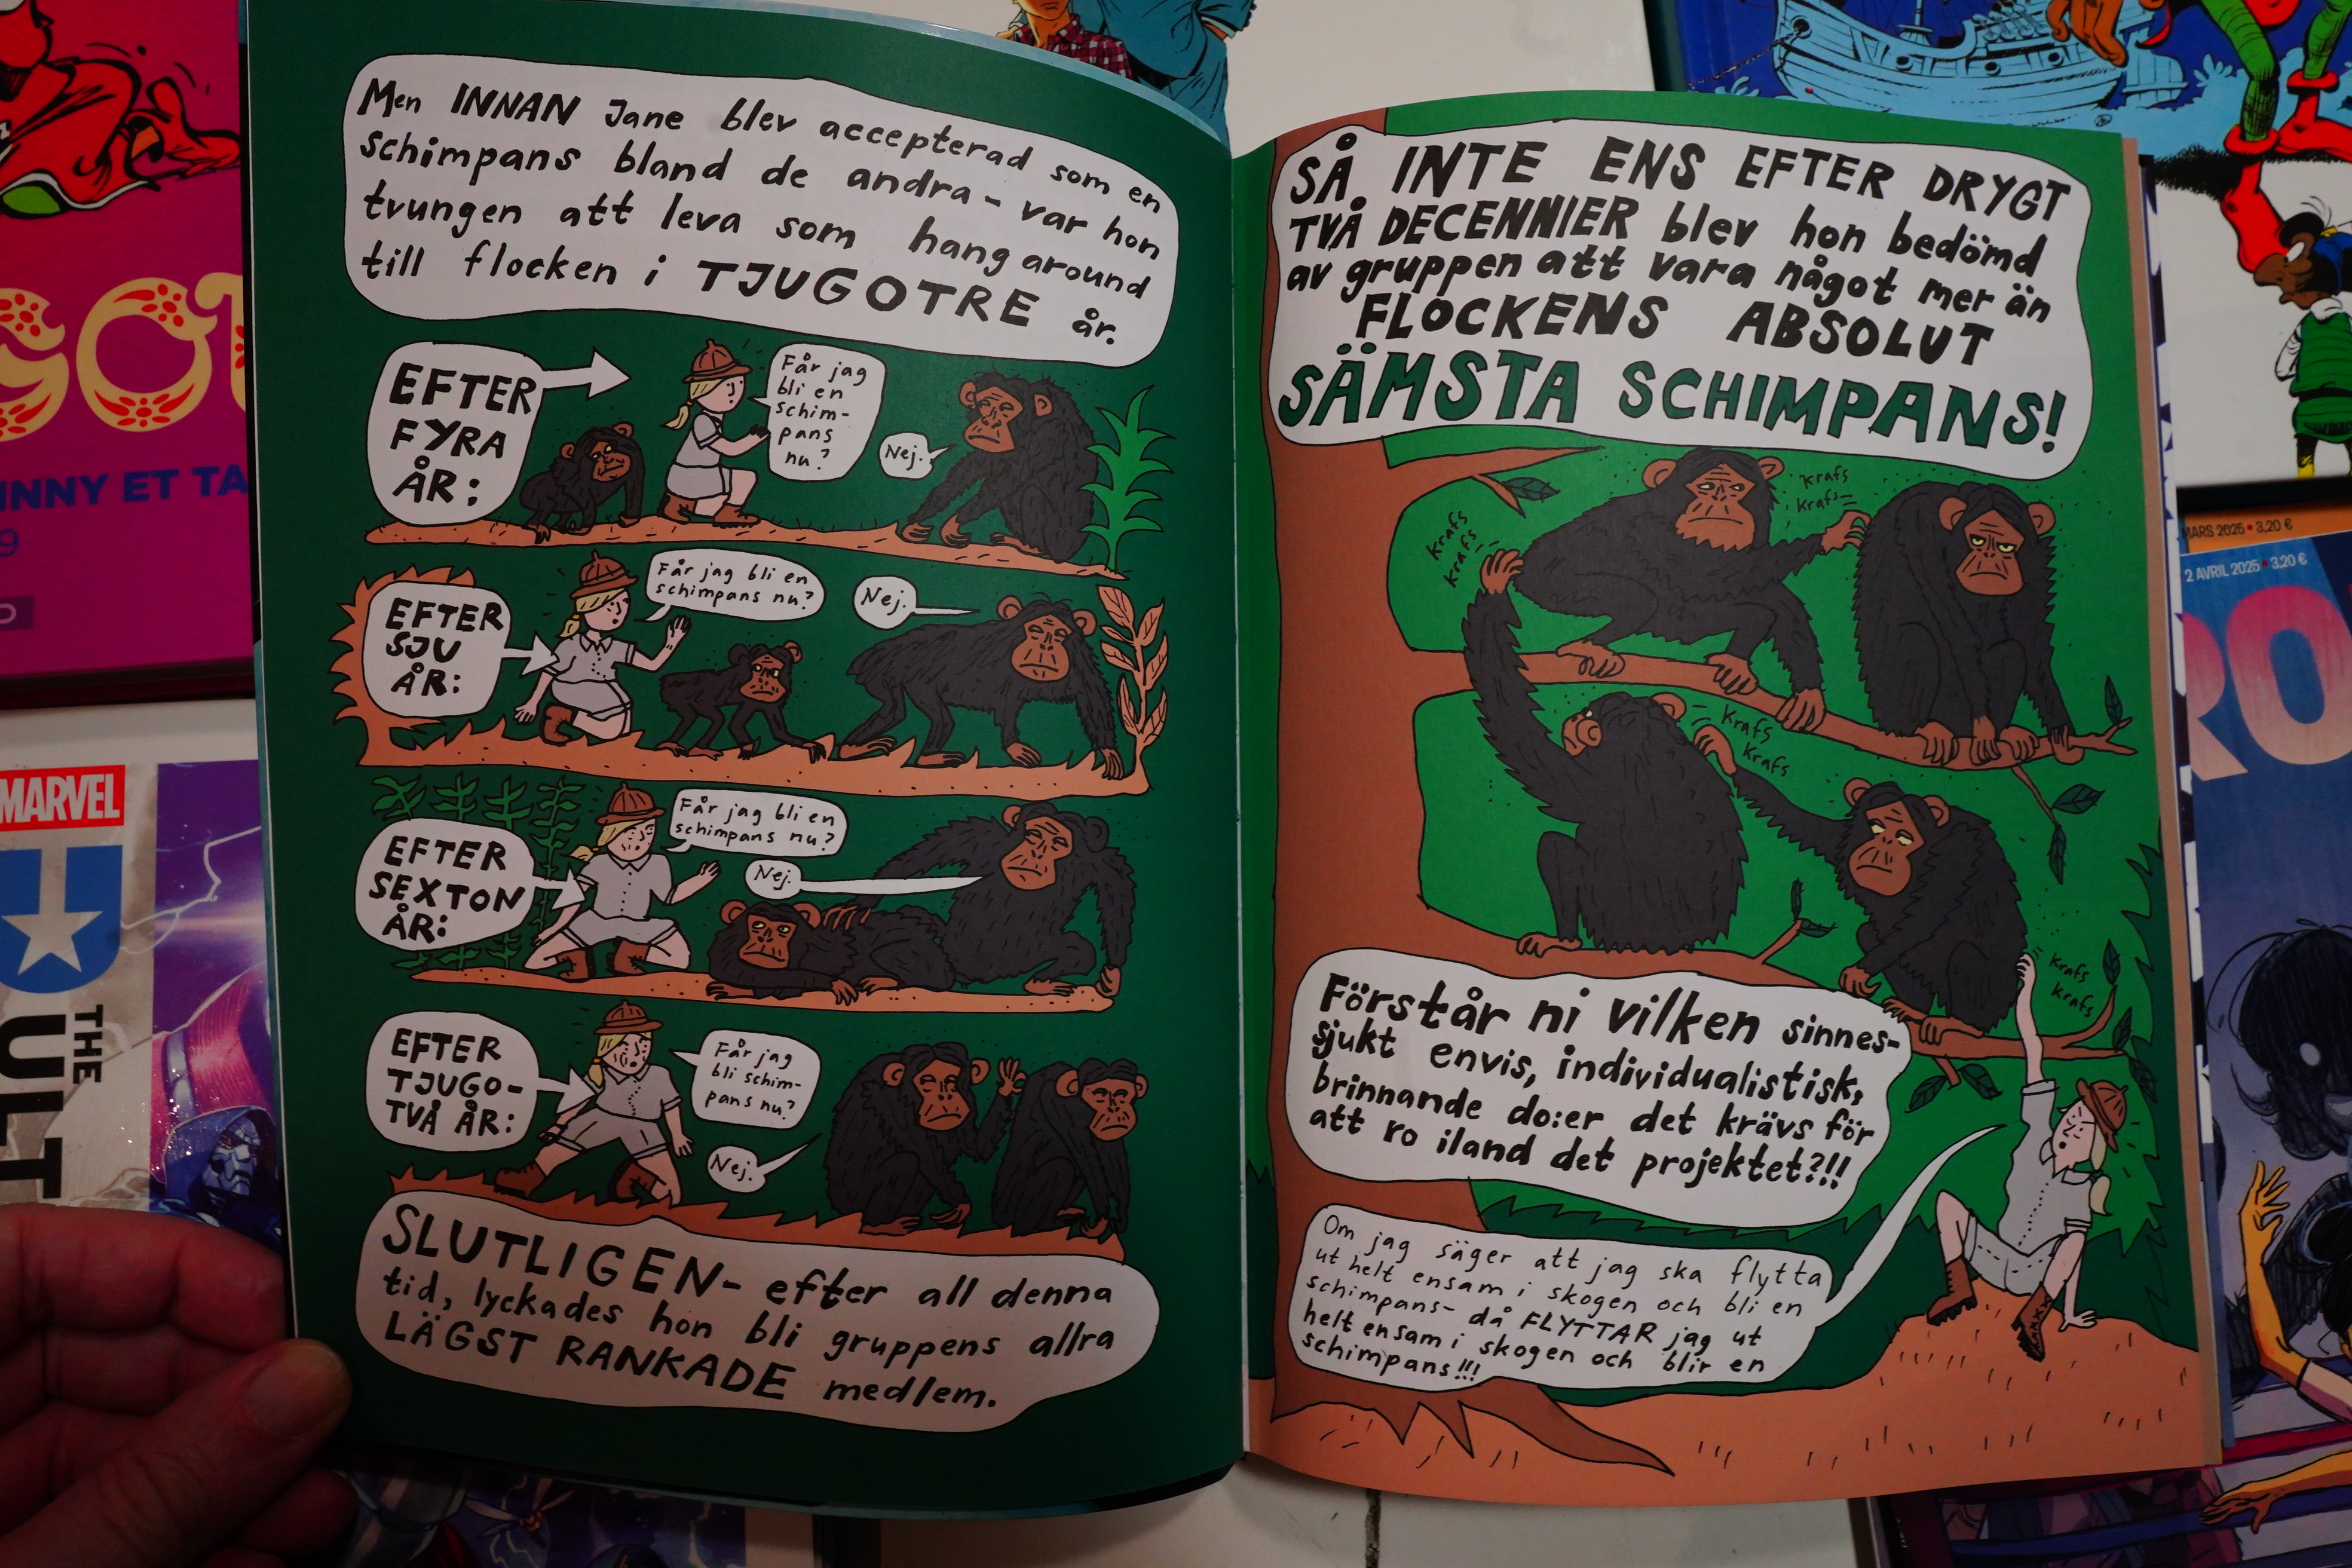 Men INNAN Jane blev accepterad som en
schimpans bland de andra - var hon
tvungen att leva som hangaround
till flocken i TJUGOTRE år.
EFTER
FYRA
ÅR:
Får jag
bli en
schim-
pans
nu?
Nej.
EFTER
SJU
ÅR:
Får jag bli en
schimpans nu?
Nej.
EFTER
SEXTON
ÅR:
Får jag bli en
schimpans nu?
Nej.
EFTER
TJUGO-
TVÅ ÅR:
Får jag
bli schim-
pans nu?
Nej.
SLUTLIGEN- efter all denna
tid, lyckades hon bli gruppens allra
LÄGST RANKADE medlem.
SÅ INTE ENS EFTER DRYGT
TVÅ DECENNIER blev hon bedömd
av gruppen att vara något mer än
FLOCKENS ABSOLUT
SÄMSTA SCHIMPANS!
krafs
krafs
krafs
krafs
krafs
krafs
krafs
krafs
Förstår ni vilken sinnes-
sjukt envis, individualistisk,
brinnande do:er det krävs för
att ro iland det projektet?!!
Om jag säger att jag ska flytta
ut helt ensam i skogen och bli en
schimpans- då FLYTTAR jag ut
helt ensam i skogen och blir en
schimpans!!!
INNY ET TA
9
MARVEL
THE
ULT
MARS 2025 • 3.20 €
2 AVRIL 2025 • 3.20 €
RO